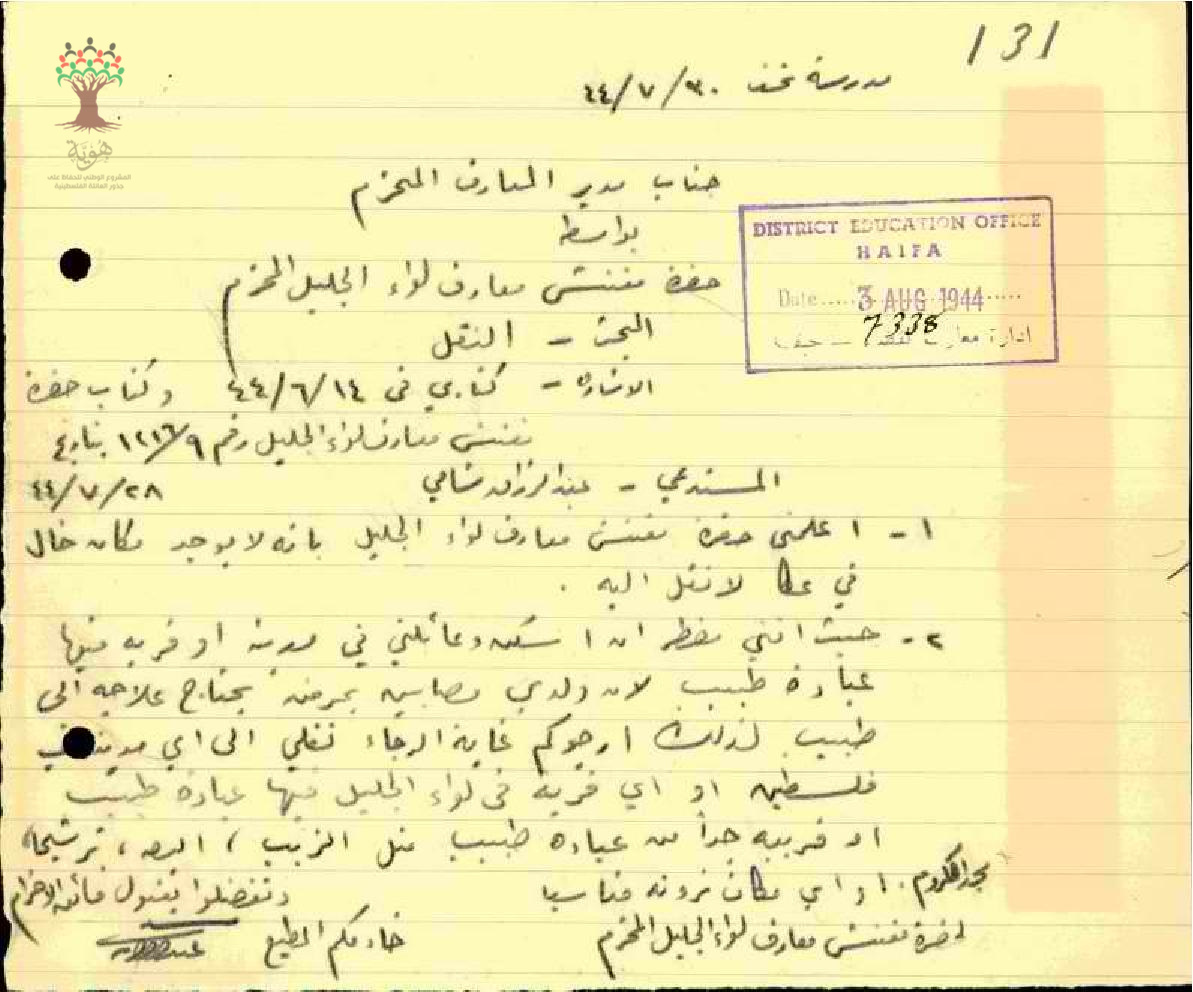 131
مدرسة نحف ٣٠/٧/٤٤
هوية
المشروع الوطني للحفاظ على
جذور العائلة الفلسطينية
جناب مدير المعارف المحترم
بواسطة
حضرة مفتش معارف لواء الجليل المحترم
DISTRICT EDUCATION OFFICE
HAIFA
Date..... 3 AUG 1944.....
7338
ادارة معارف حيفا
البحث - النقل
الاشارة - كتابي في ١٤/٦/٤٤ وكتاب حضرة
مفتش معارف لواء الجليل رقم ١٢١٦/٩ بتاريخ
٢٨/٧/٤٤
المستدعي - عبد الرزاق شامي
١- اعلمني حضرة مفتش معارف لواء الجليل بانه لا يوجد مكان خال
في عكا لانقل اليه .
٢- حيث انني مضطر ان اسكن وعائلتي في مدينة او قريه فيها
عيادة طبيب لان ولدي مصابين بمرض يحتاج علاجه الى
طبيب لذلك ارجوكم غاية الرجاء نقلي الى اي مدينة في
فلسطين او اي قرية في لواء الجليل فيها عيادة طبيب
او قريبه جداً من عيادة طبيب مثل الزيب ، البصه ، ترشيحا،
مجد الكروم. او اي مكان ترونه مناسبا
وتفضلوا بقبول فائق الاحترام
خادمكم المطيع
لحضرة مفتش معارف لواء الجليل المحترم